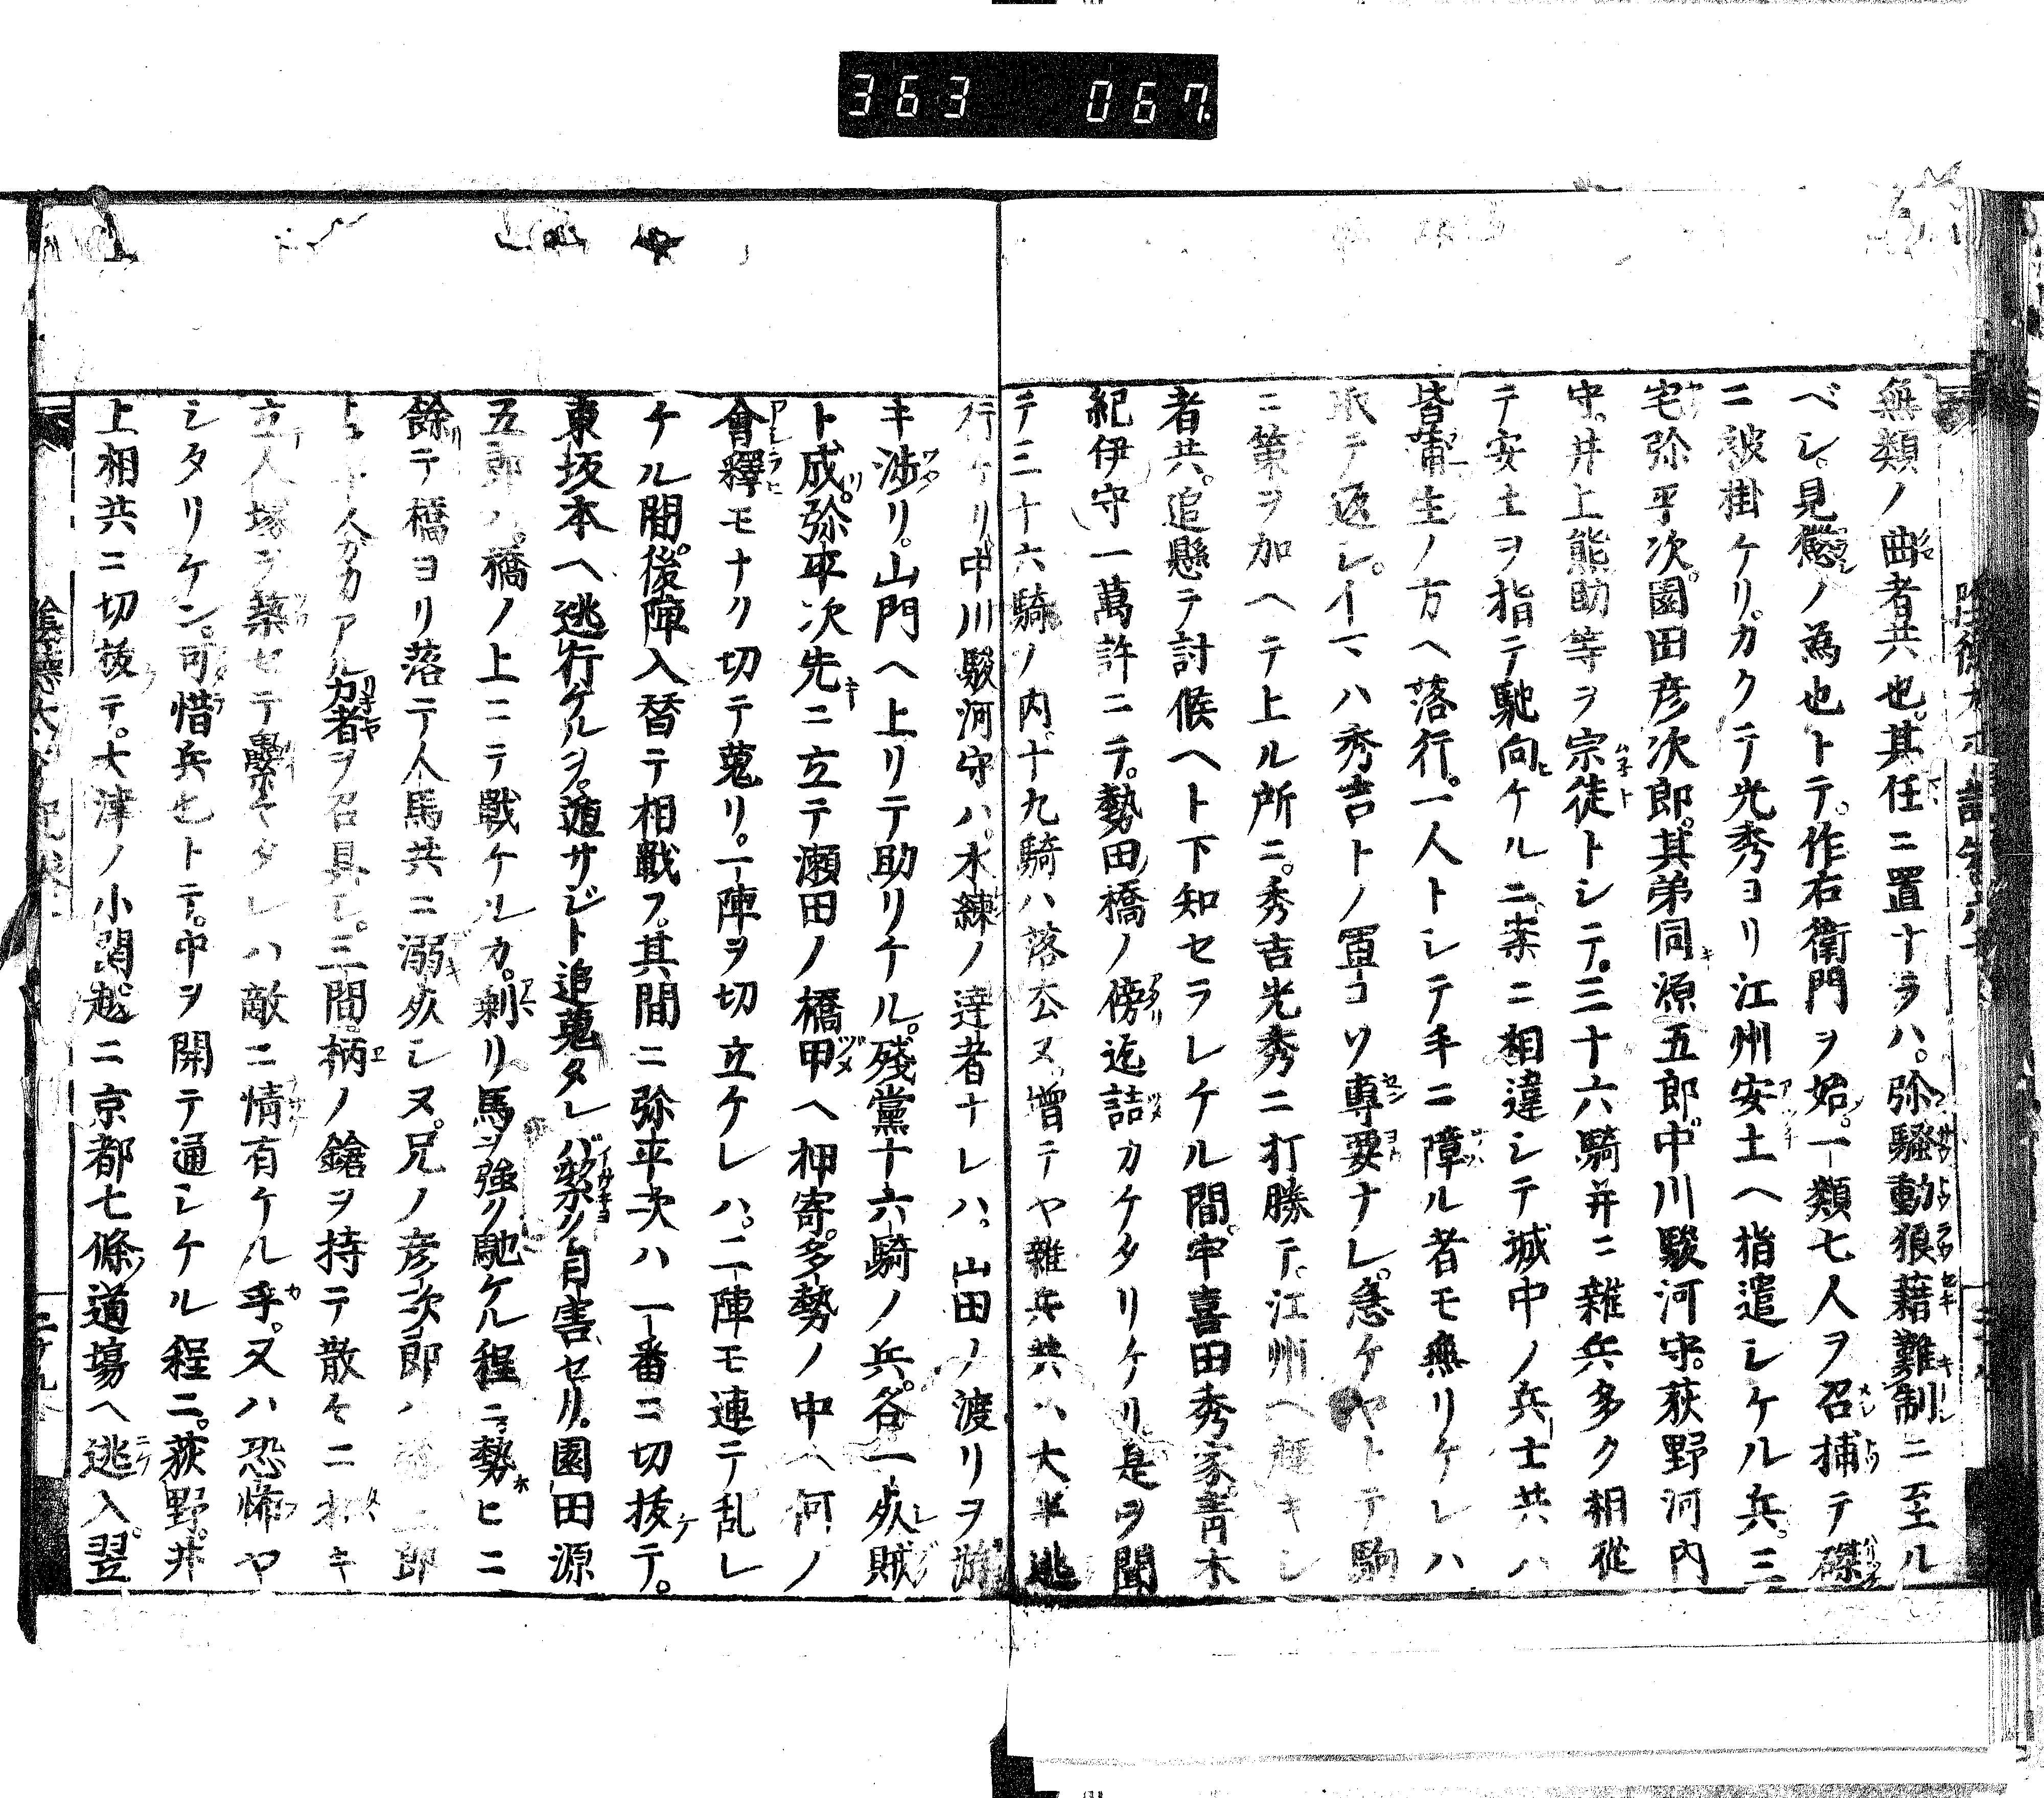 363 067
無類ノ曲者共也。其任ニ置ナラハ。弥騒動狼藉難制ニ至ル
ベシ。見懲ノ為也トテ。作右衛門ヲ始。一類七人ヲ召捕テ磔
ニ被掛ケリ。カクテ光秀ヨリ江州安土ヘ指遣シケル兵。三
宅弥平次。園田彦次郎。其弟同源五郎。中川駿河守。荻野河内
守。井上熊助等ヲ宗徒トシテ。三十六騎并ニ雑兵多ク相従
テ安土ヲ指テ馳向ケルニ案ニ相違シテ城中ノ兵士共ハ
皆蒲生ノ方ヘ落行。一人トシテ手ニ障ル者モ無リケレハ
取テ返シ。イマハ秀吉トノ軍コソ専要ナレ。急ケヤトテ駒
ニ策ヲ加ヘテ上ル所ニ。秀吉光秀ニ打勝テ。江州ヘ趣キシ
者共。追懸テ討候ヘト下知セラレケル間。宇喜田秀家。青木
紀伊守一萬許ニテ。勢田橋ノ傍迄詰カケタリケリ是ヲ聞
テ三十六騎ノ内。十九騎ハ落玄ヌ。増テヤ雑兵共ハ大半逃
行ケリ。中川駿河守ハ。水練ノ達者ナレハ。山田ノ渡リヲ游
キ渉リ。山門ヘ上リテ助リケル。残黨十六騎ノ兵。各一
ト成。弥平次先ニ立テ瀬田ノ橋甲ヘ押寄。多勢ノ中ヘ何ノ
會釋モナク切テ蒐リ。一陣ヲ切立ケレハ。二陣モ連テ乱レ
ケル間。後陣入替テ相戦フ。其間ニ弥平次ハ一番ニ切抜テ。
東坂本ヘ逃行ケルヲ。遁サジト追蒐タレバ潔ク自害セリ。園田源
五郎ハ。橋ノ上ニテ戰ケルカ。剰リ馬ヲ強ク馳ケル程ニ勢ヒニ
餘テ橋ヨリ落テ人馬共ニ溺死シヌ。兄ノ彦次郎ハ
十人カカアル力者ヲ召具シ。三間柄ノ鎗ヲ持テ散々ニ
立人塚ヲ築セテタレハ敵ニ情有ケル乎。又ハ恐怖ヤ
シタリケン。可惜兵也トテ。中ヲ開テ通シケル程ニ。荻野。井
上相共ニ切抜テ。大津ノ小関越ニ京都七條道場ヘ逃入。翌